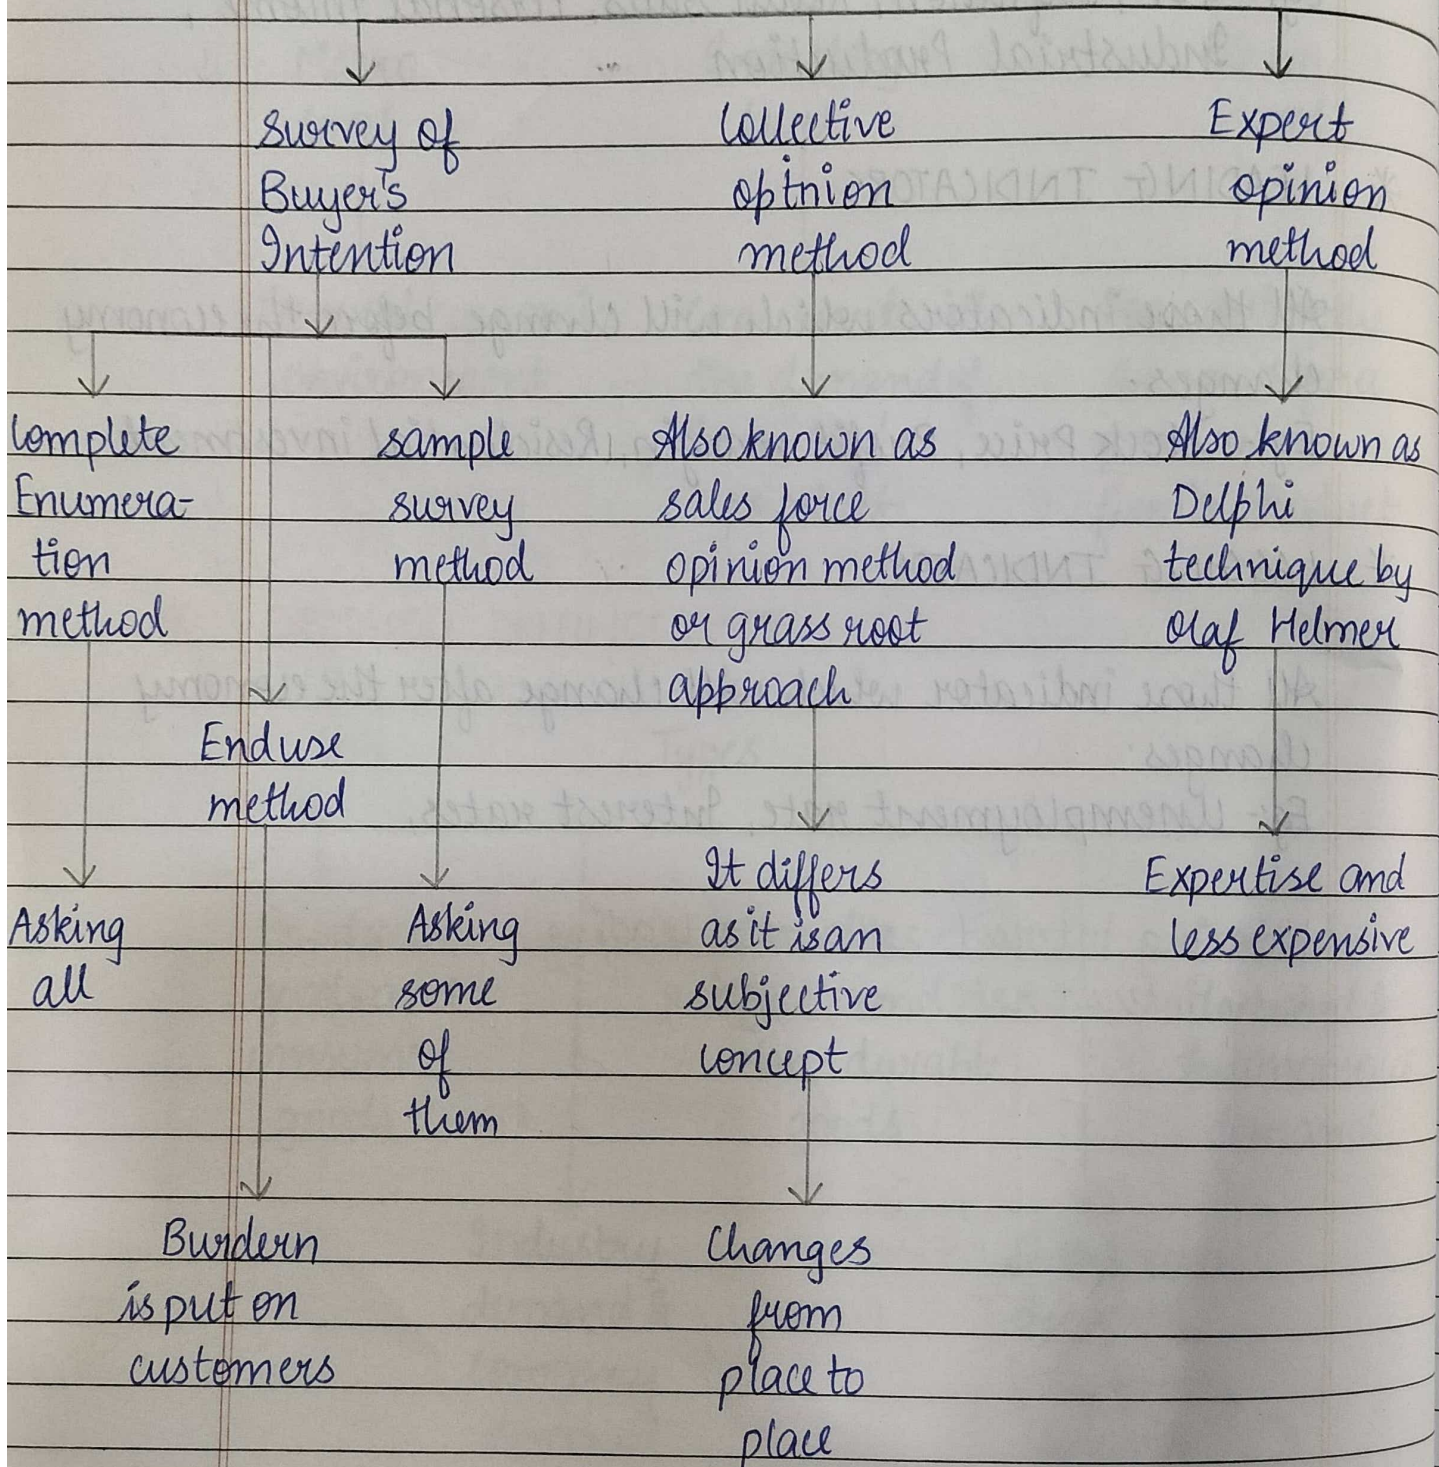 Survey of
Buyer's
Intention
Collective
optnion
method
Expert
opinion
method
Complete
Enumera-
tion
method
sample
survey
method
Also known as
sales force
opinion method
or grass root
approach
Also known as
Delphi
technique by
Olaf Helmer
End use
method
Asking
all
Asking
some
of
them
It differs
as it is an
subjective
concept
Expertise and
less expensive
Burdern
is put on
customers
Changes
from
place to
place